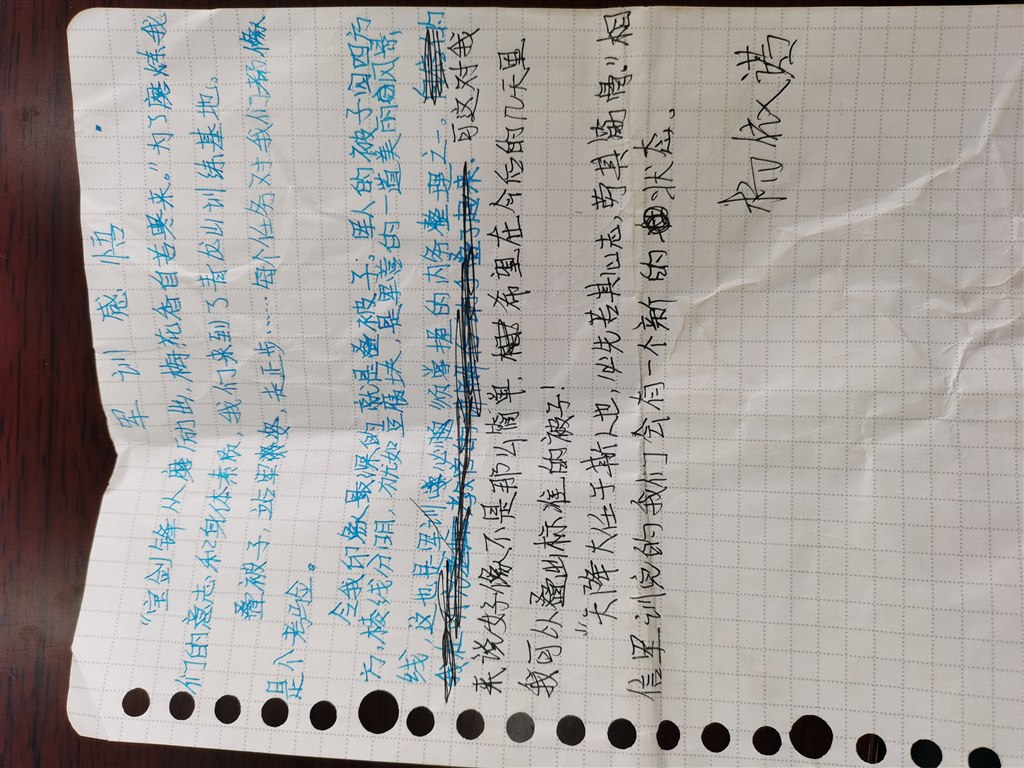 军训感悟
“宝剑锋从磨砺出，梅花香自苦寒来。”为了磨炼我
们的意志和身体素质，我们来到了青龙山训练基地。
叠被子，站军姿，走正步……每个任务对我们都像
是个考验。
令我印象最深的就是叠被子：军人的被子四四方
方，棱线分明，宛如豆腐块，是军营的一道美丽风景
线，这也是军训必须掌握的内务整理之一。
可这对我
来说好像不是那么简单，希望在今后的几天里
我可以叠出标准的被子！
“天降大任于斯人也，必先苦其心志，劳其筋骨。”相
信军训完的我们会有一个新的状态。
杨依诺